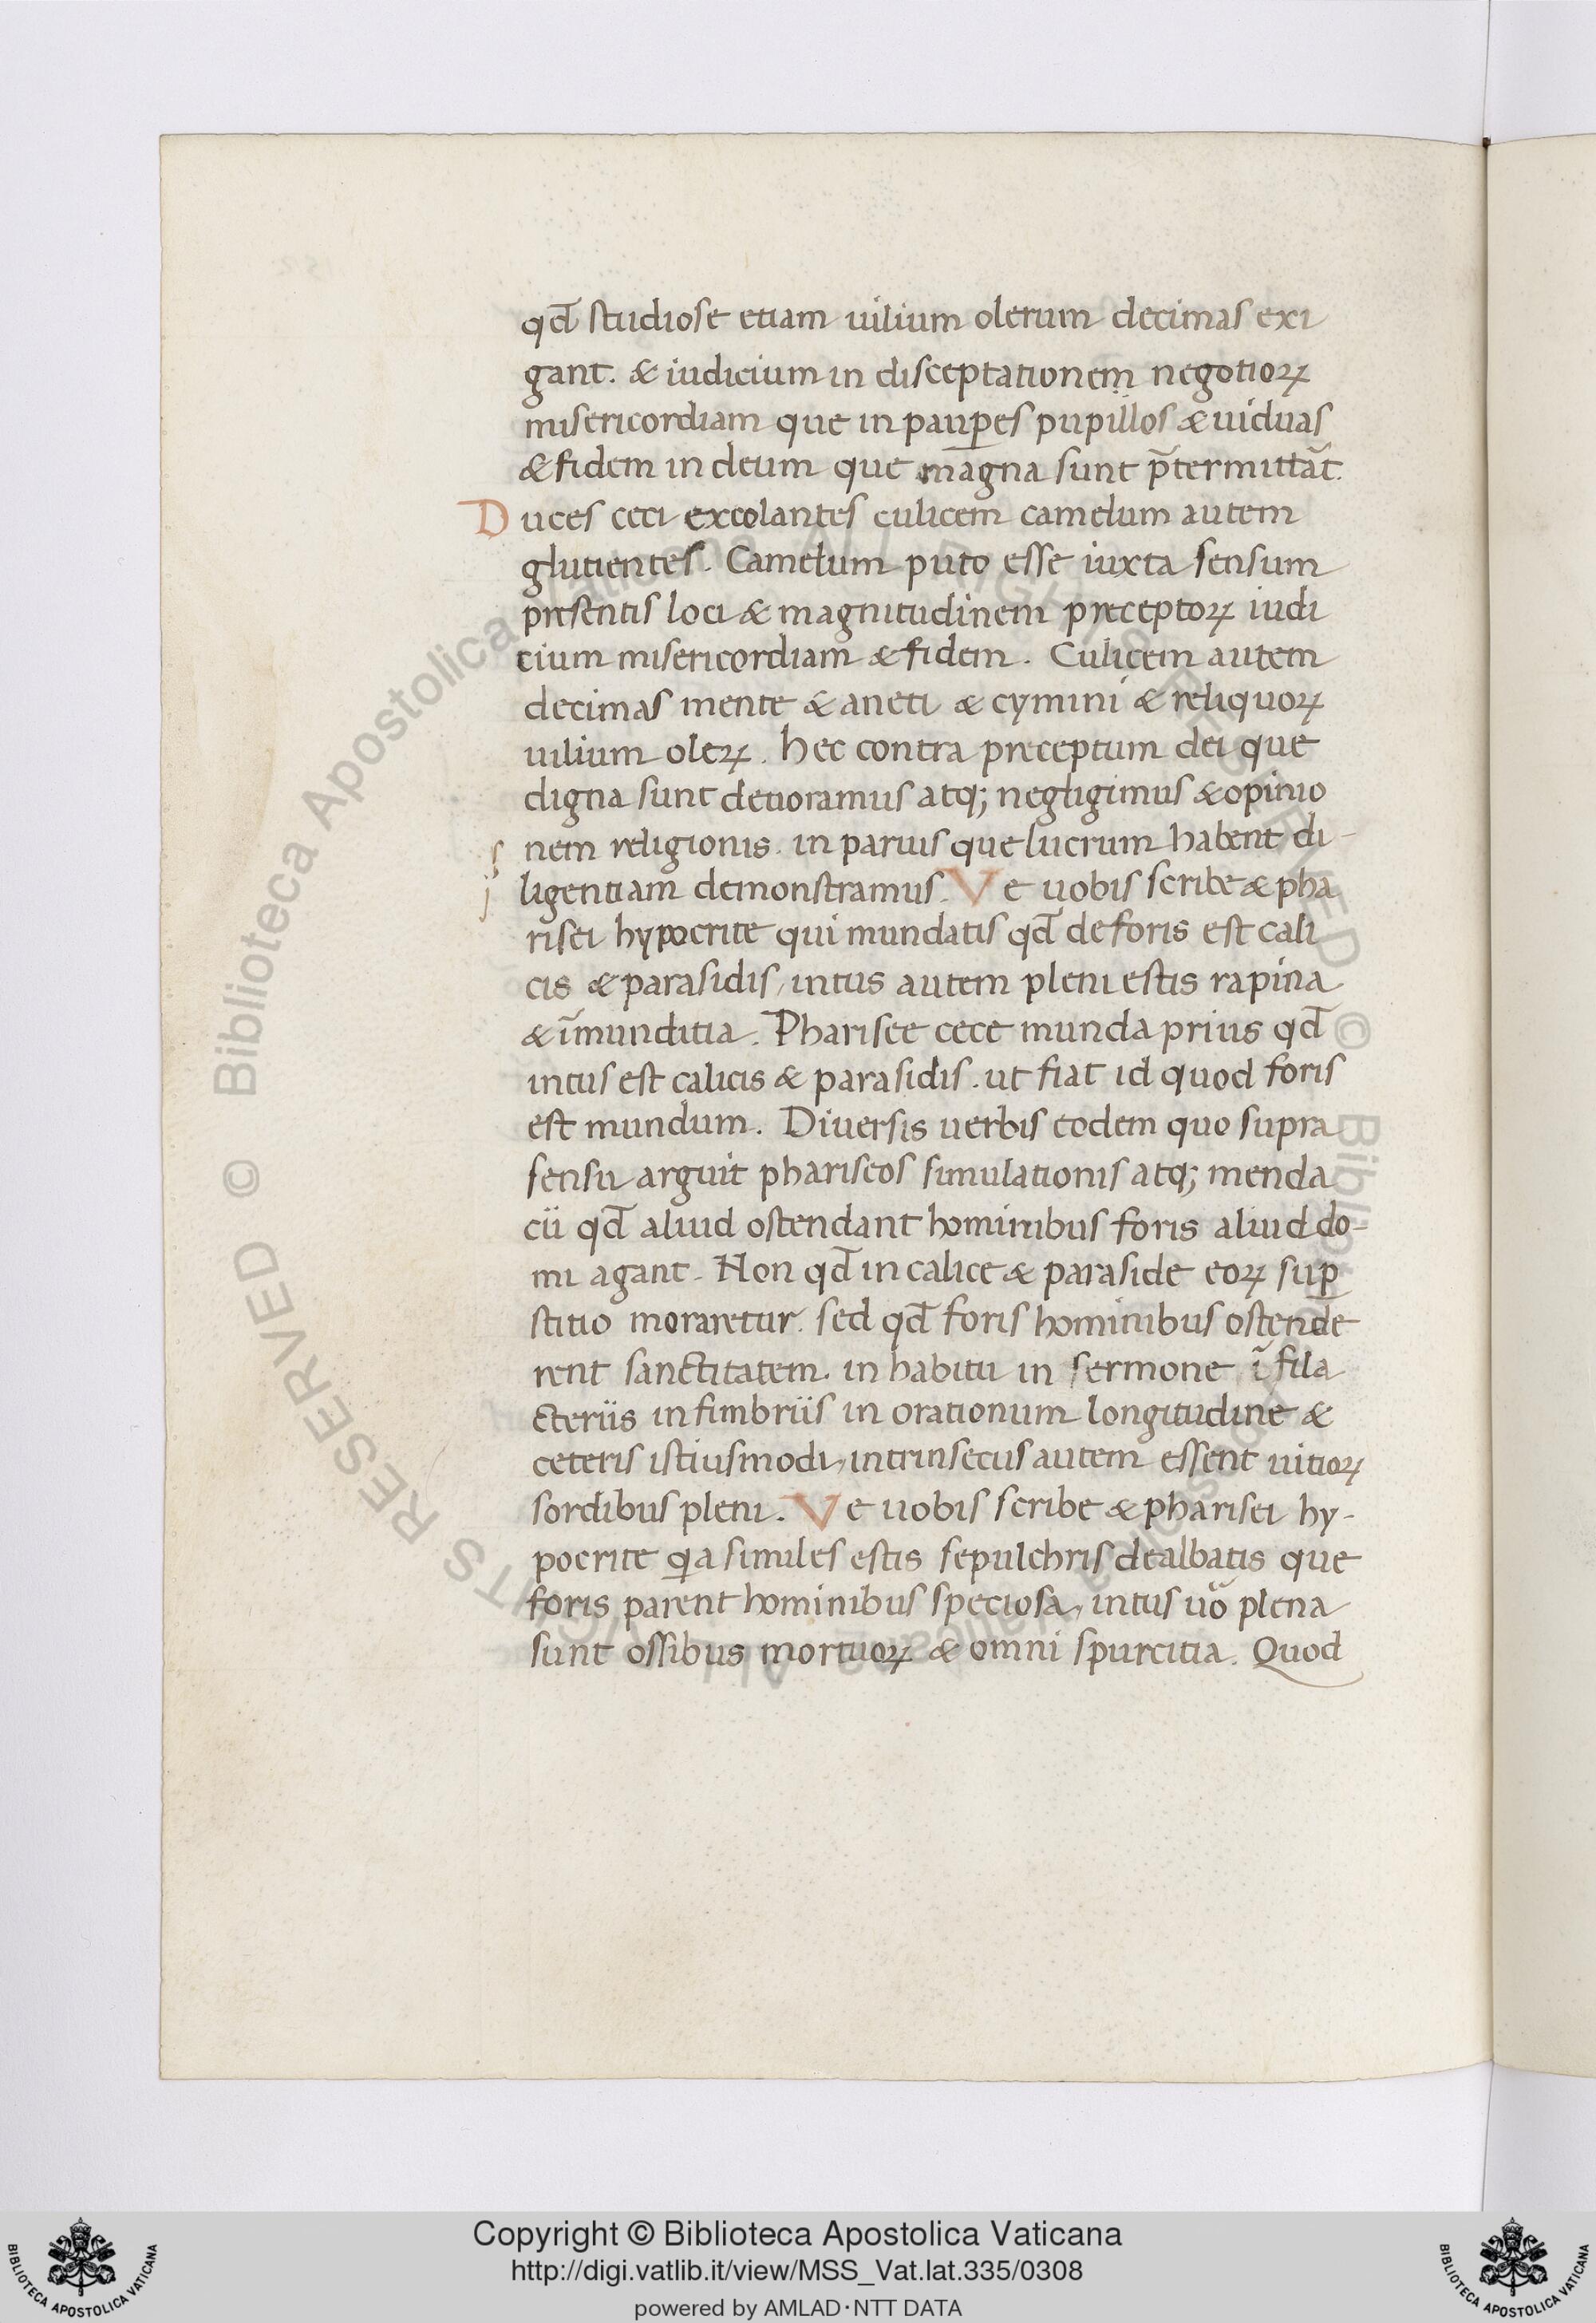 qd̄ studiose etiam uilium olerum decimas exi
gant. & iudicium in disceptationem negotioꝝ
misericordiam que in pauꝑes pupillos & uiduas
& fidem in deum que magna sunt p̄termittāt.
Duces ceci excolantes culicem camelum autem
glutientes. Camelum puto esse iuxta sensum
presentis loci & magnitudinem preceptoꝝ iudi
cium misericordiam & fidem. Culicem autem
decimas mente & aneti & cymini & reliquoꝝ
uilium oleꝝ. hec contra preceptum dei que
digna sunt detioramus atq; negligimus & opinio
nem religionis. in paruis que lucrum habent di-
ligentiam demonstramus. Ve uobis scribe & pha
risei hypocrite qui mundatis qd̄ deforis est cali
cis & parasidis, intus autem pleni estis rapina
& īmunditia. Pharisee cece munda prius qd̄
intus est calicis & parasidis. ut fiat id quod foris
est mundum. Diuersis uerbis eodem quo supra
sensu arguit phariseos simulationis atq; menda
cii qd̄ aliud ostendant hominibus foris aliud do-
mi agant. Non qd̄ in calice & paraside eoꝝ suꝑ
stitio moraretur. sed qd̄ foris hominibus ostende
rent sanctitatem. in habitu in sermone ī fila
cteriis in fimbriis in orationum longitudine &
ceteris istiusmodi, intrinsecus autem essent uitioꝝ
sordibus pleni. Ve uobis scribe & pharisei hy-
pocrite qia similes estis sepulchris dealbatis que
foris parent hominibus speciosa, intus uo᷎ plena
sunt ossibus mortuoꝝ & omni spurcitia. Quod
Copyright © Biblioteca Apostolica Vaticana
http://digi.vatlib.it/view/MSS_Vat.lat.335/0308
powered by AMLAD·NTT DATA